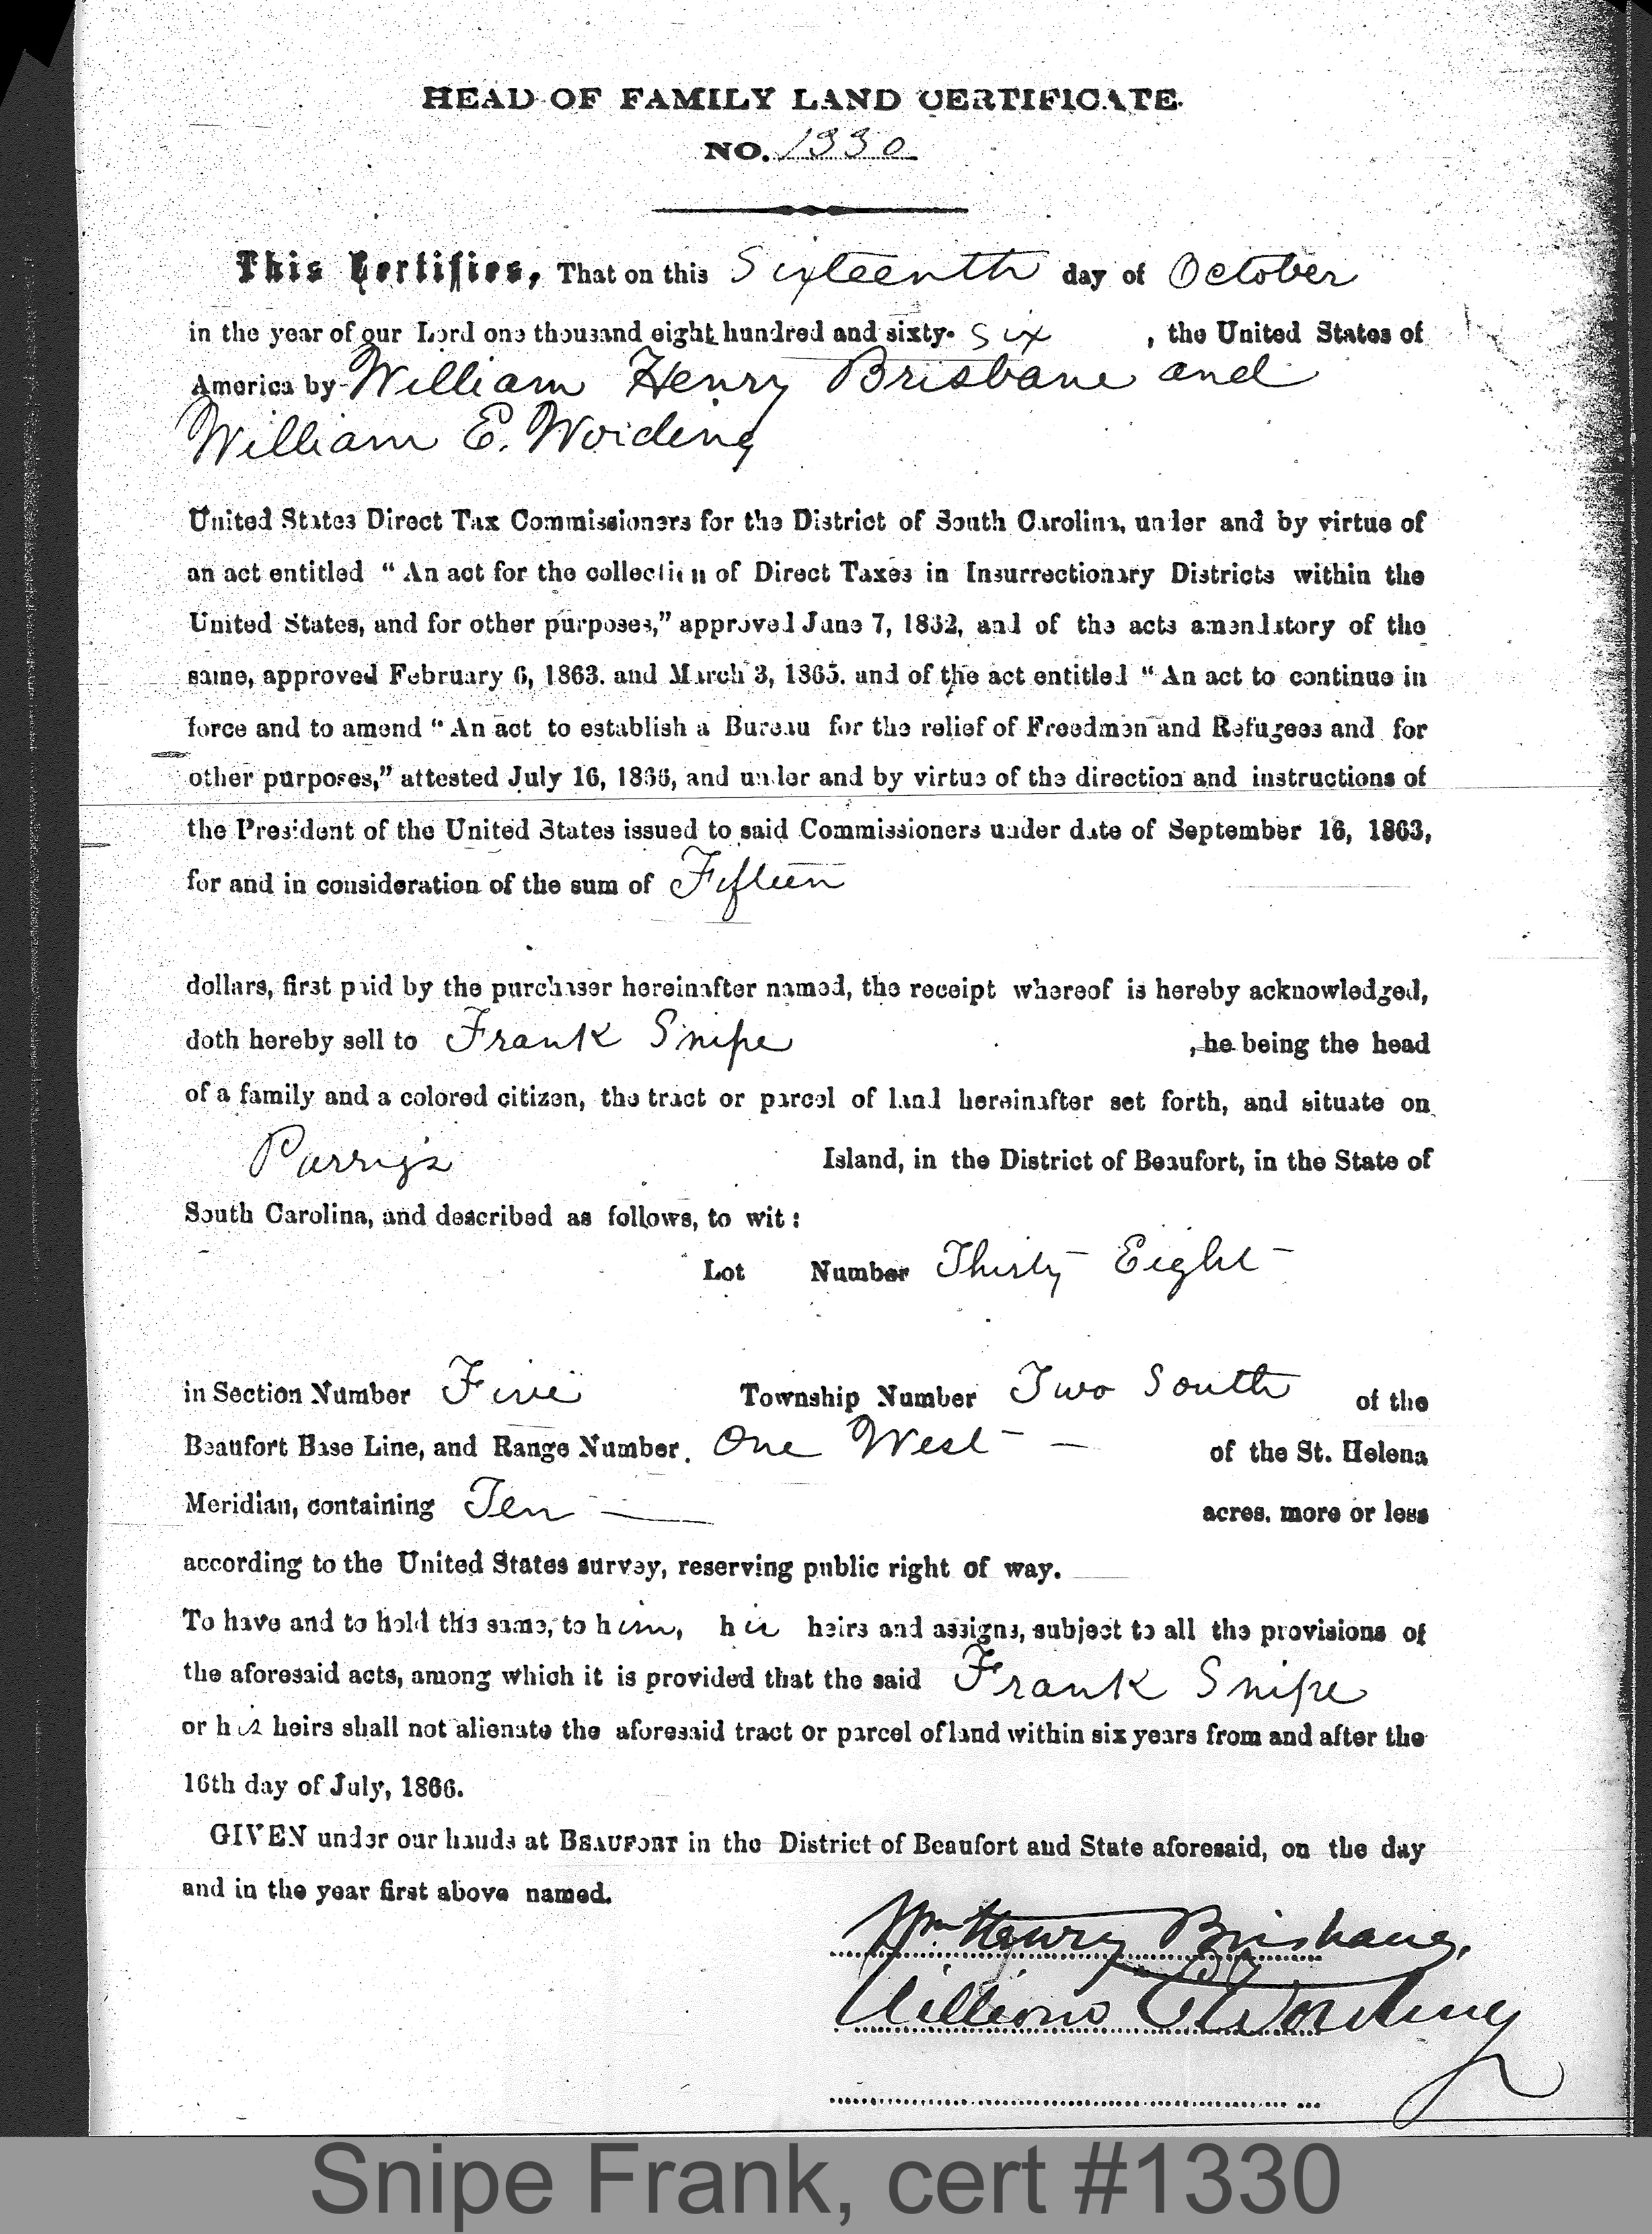 HEAD OF FAMILY LAND CERTIFICATE.
NO. 1330
This Certifies, That on this Sixteenth day of October
in the year of our Lord one thousand eight hundred and sixty-six, the United States of
America by William Henry Brisbane and
William E. Wording
United States Direct Tax Commissioners for the District of South Carolina, under and by virtue of
an act entitled "An act for the collection of Direct Taxes in Insurrectionary Districts within the
United States, and for other purposes," approved June 7, 1862, and of the acts amendatory of the
same, approved February 6, 1863. and March 3, 1865. and of the act entitled "An act to continue in
force and to amend "An act to establish a Bureau for the relief of Freedmen and Refugees and for
other purposes," attested July 16, 1866, and under and by virtue of the direction and instructions of
the President of the United States issued to said Commissioners under date of September 16, 1863,
for and in consideration of the sum of Fifteen
dollars, first paid by the purchaser hereinafter named, the receipt whereof is hereby acknowledged,
doth hereby sell to Frank Snipe , he being the head
of a family and a colored citizen, the tract or parcel of land hereinafter set forth, and situate on
Parry's Island, in the District of Beaufort, in the State of
South Carolina, and described as follows, to wit:
Lot Number Thirty Eight
in Section Number Five Township Number Two South of the
Beaufort Base Line, and Range Number. One West of the St. Helena
Meridian, containing Ten acres. more or less
according to the United States survey, reserving public right of way.
To have and to hold the same, to him, his heirs and assigns, subject to all the provisions of
the aforesaid acts, among which it is provided that the said Frank Snipe
or his heirs shall not alienate the aforesaid tract or parcel of land within six years from and after the
16th day of July, 1866.
GIVEN under our hands at BEAUFORT in the District of Beaufort and State aforesaid, on the day
and in the year first above named.
Wm. Henry Brisbane,
William E. Wording
Snipe Frank, cert #1330